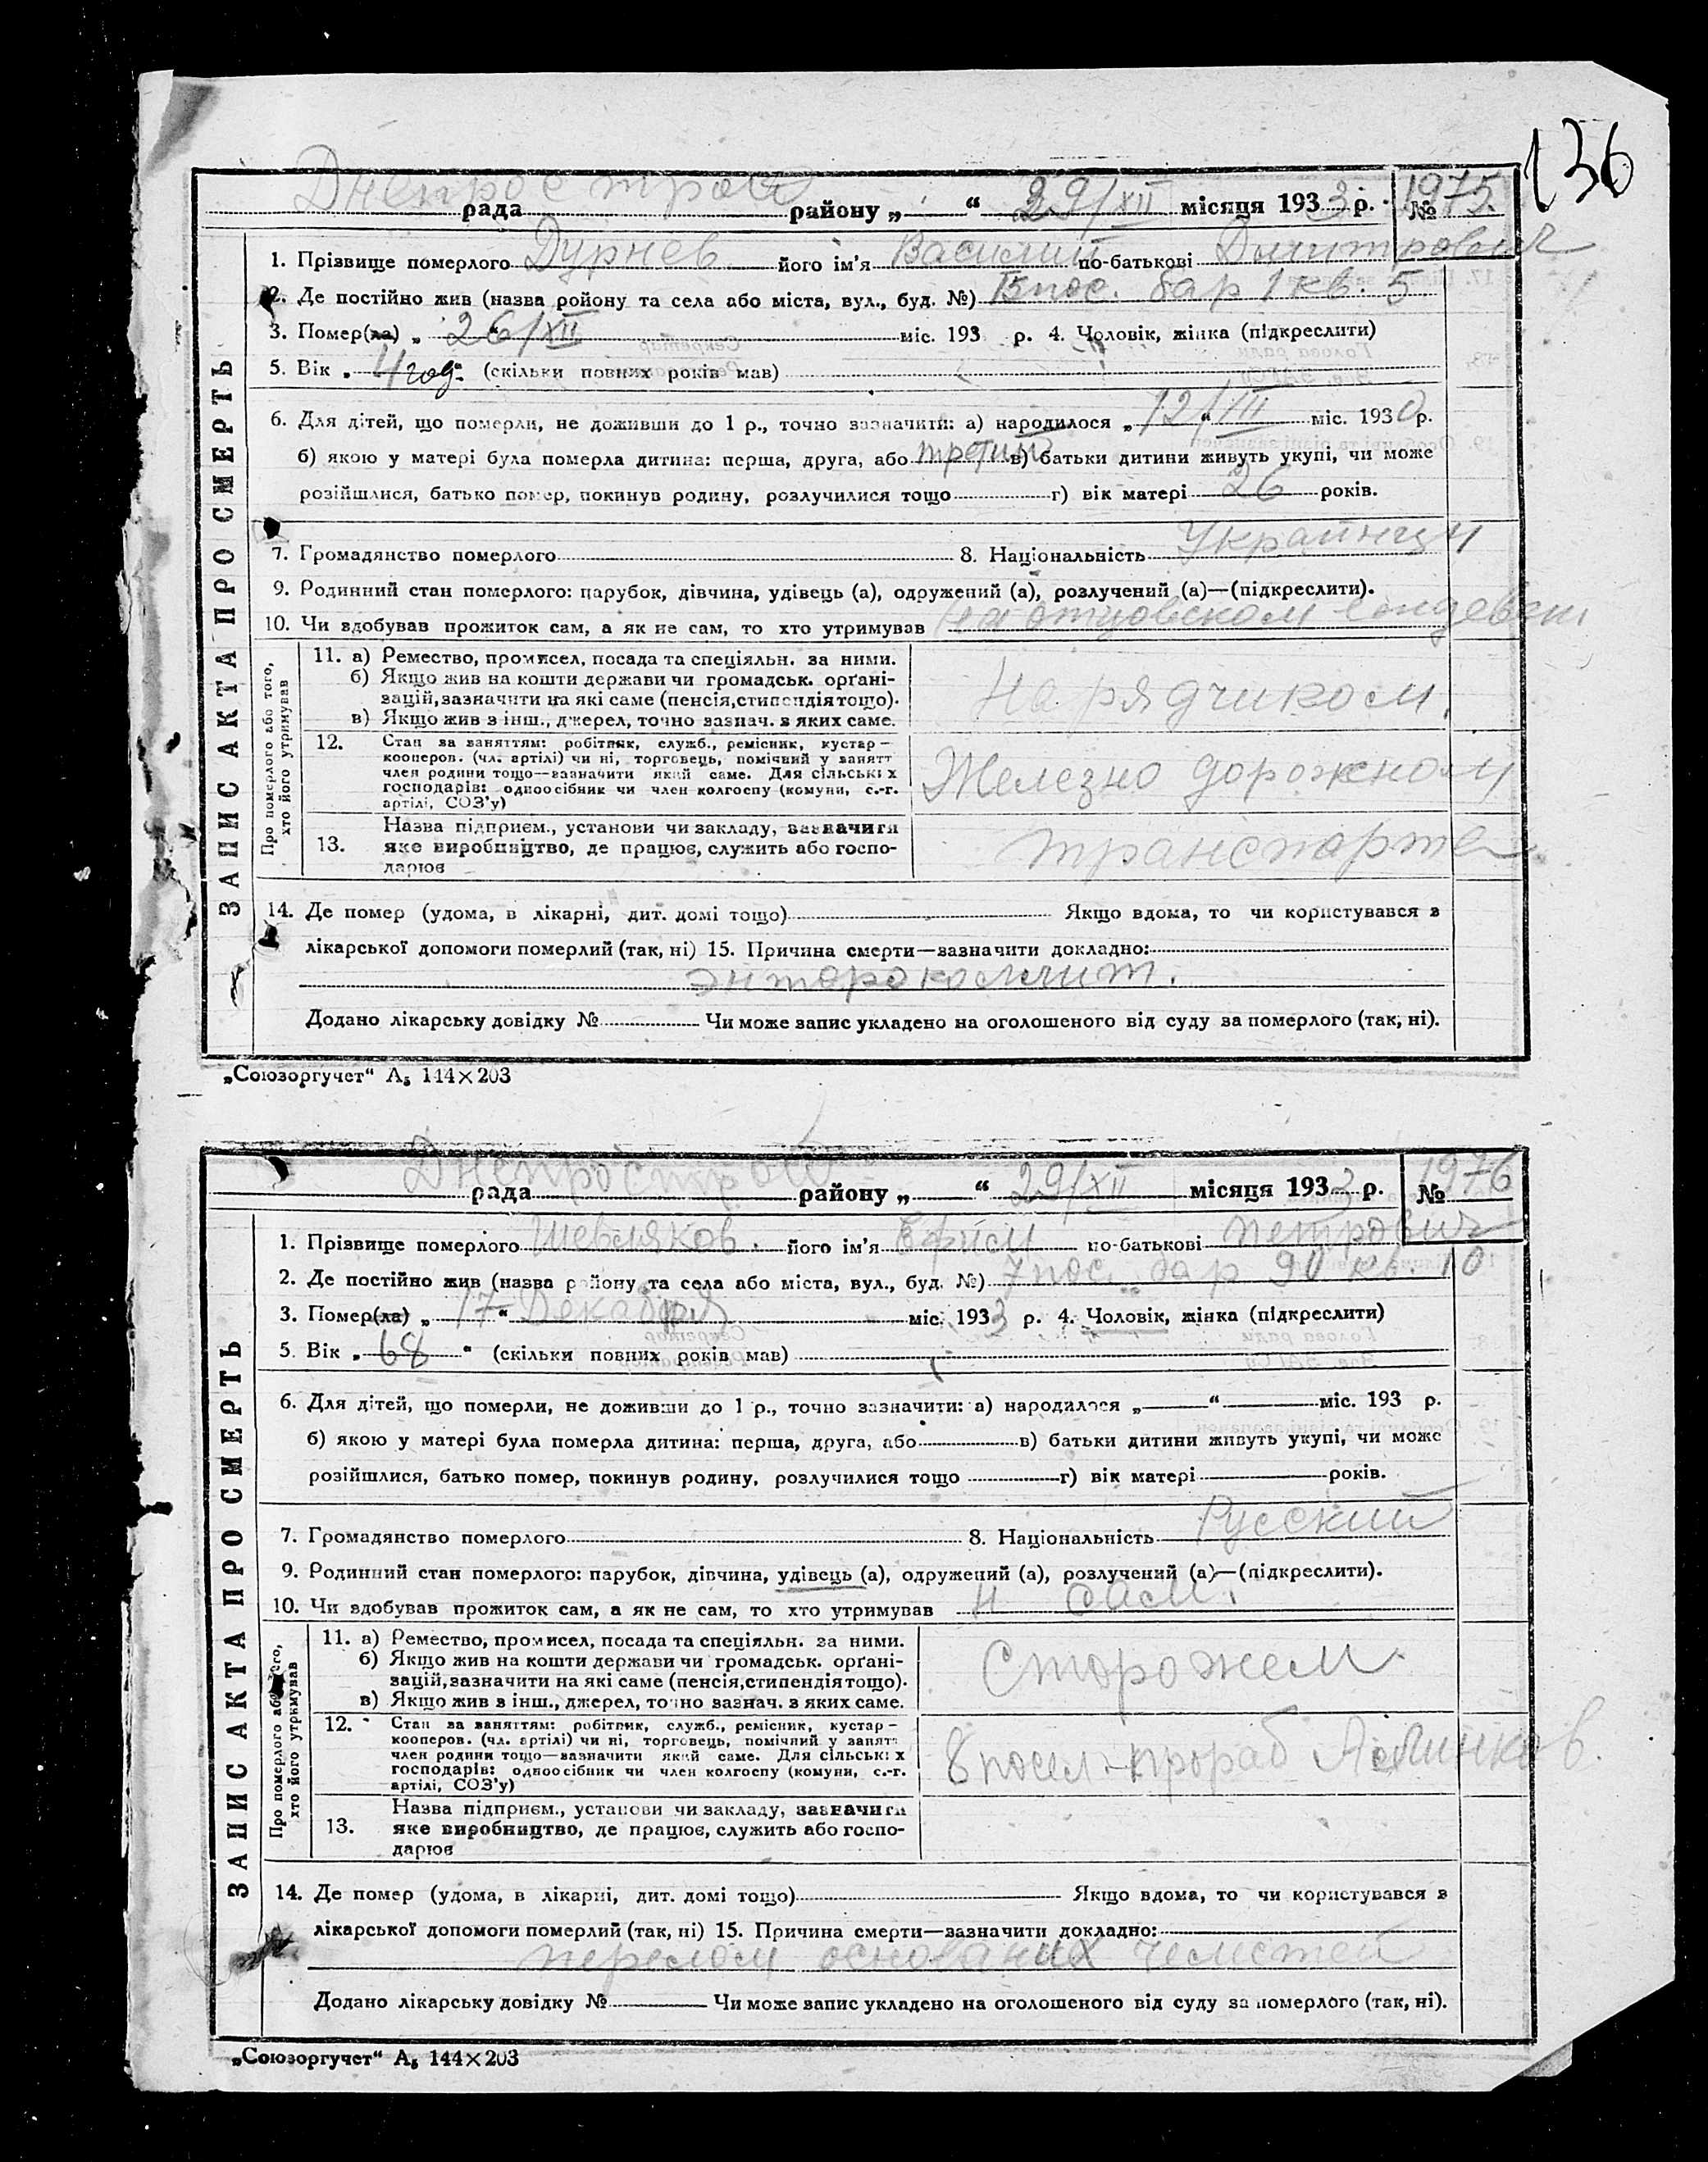 136
Днепрострой
рада района „ “ 29/XII місяця 1933 р. № 1975.
ЗАПИС АКТА ПРО СМЕРТЬ
1. Прізвище померлого Дурнев його ім'я Василий по-батькові Димитрович
2. Де постійно жив (назва району та села або міста, вул., буд. №) пос. бар 1 кв. 5.
3. Помер(ла) „ 26/XII міс. 193 р. 4. Чоловік, жінка (підкреслити)
5. Вік „ 4 год. “ (скільки повних років мав)
6. Для дітей, що померли, не доживши до 1 р., точно зазначити: а) народилося „ 12/ “ міс. 1930 р.
б) якою у матері була померла дитина: перша, друга, або третий в) батьки дитини живуть укупі, чи може
розійшлися, батько помер, покинув родину, розлучилися тощо г) вік матері 26 років.
7. Громадянство померлого 8. Національність
9. Родинний стан померлого: парубок, дівчина, удівець (а), одружений (а), розлучений (а)—(підкреслити).
10. Чи здобував прожиток сам, а як не сам, то хто утримував на отцовском
Про померлого або того, хто його утримував
11. а) Ремество, промисел, посада та спеціяльн. за ними.
б) Якщо жив на кошти держави чи громадськ. орґані-
зацій, зазначити на які саме (пенсія, стипендія тощо).
в) Якщо жив з інш., джерел, точно зазнач. з яких саме.
Нарядчиком.
12. Стан за заняттям: робітник, служб., ремісник, кустар—
кооперов. (чл. артілі) чи ні, торговець, помічний у занятт
член родини тощо—зазначити який саме. Для сільських
господарів: одноосібник чи член колгоспу (комуни, с.-г.
артілі, СОЗ'у)
Железно дорожном
13. Назва підприєм., установи чи закладу, зазначити
яке виробництво, де працює, служить або госпо-
дарює
транспорте
14. Де помер (удома, в лікарні, дит. домі тощо) Якщо вдома, то чи користувався з
лікарської допомоги померлий (так, ні) 15. Причина смерти—зазначити докладно:
энтероколлит.
Додано лікарську довідку № Чи може запис укладено на оголошеного від суду за померлого (так, ні).
„Союзоргучет“ А5 144×203
Днепрострой
рада району „ “ 29/XII місяця 1933 р. № 1976
ЗАПИС АКТА ПРО СМЕРТЬ
1. Прізвище померлого Шевляков його ім'я Ефим по-батькові Петрович
2. Де постійно жив (назва району та села або міста, вул., буд. №) 7 пос. бар 90 кв. 10
3. Помер(ла) „ 17 “ Декабря міс. 1933 р. 4. Чоловік, жінка (підкреслити)
5. Вік „ 68 “ (скільки повних років мав)
6. Для дітей, що померли, не доживши до 1 р., точно зазначити: а) народилося „ “ міс. 193 р.
б) якою у матері була померла дитина: перша, друга, або в) батьки дитини живуть укупі, чи може
розійшлися, батько помер, покинув родину, розлучилися тощо г) вік матері років.
7. Громадянство померлого 8. Національність Русский
9. Родинний стан померлого: парубок, дівчина, удівець (а), одружений (а), розлучений (а)—(підкреслити).
10. Чи здобував прожиток сам, а як не сам, то хто утримував сам.
Про померлого або того, хто його утримував
11. а) Ремество, промисел, посада та спеціяльн. за ними.
б) Якщо жив на кошти держави чи громадськ. орґані-
зацій, зазначити на які саме (пенсія, стипендія тощо).
в) Якщо жив з інш., джерел, точно зазнач. з яких саме.
Сторожем.
12. Стан за заняттям: робітник, служб., ремісник, кустар—
кооперов. (чл. артілі) чи ні, торговець, помічний у занятт
член родини тощо—зазначити який саме. Для сільських
господарів: одноосібник чи член колгоспу (комуни, с.-г.
артілі, СОЗ'у)
8 посел прораб
13. Назва підприєм., установи чи закладу, зазначити
яке виробництво, де працює, служить або госпо-
дарює
14. Де помер (удома, в лікарні, дит. домі тощо) Якщо вдома, то чи користувався з
лікарської допомоги померлий (так, ні) 15. Причина смерти—зазначити докладно:
перелом
Додано лікарську довідку № Чи може запис укладено на оголошеного від суду за померлого (так, ні).
„Союзоргучет“ А5 144×203